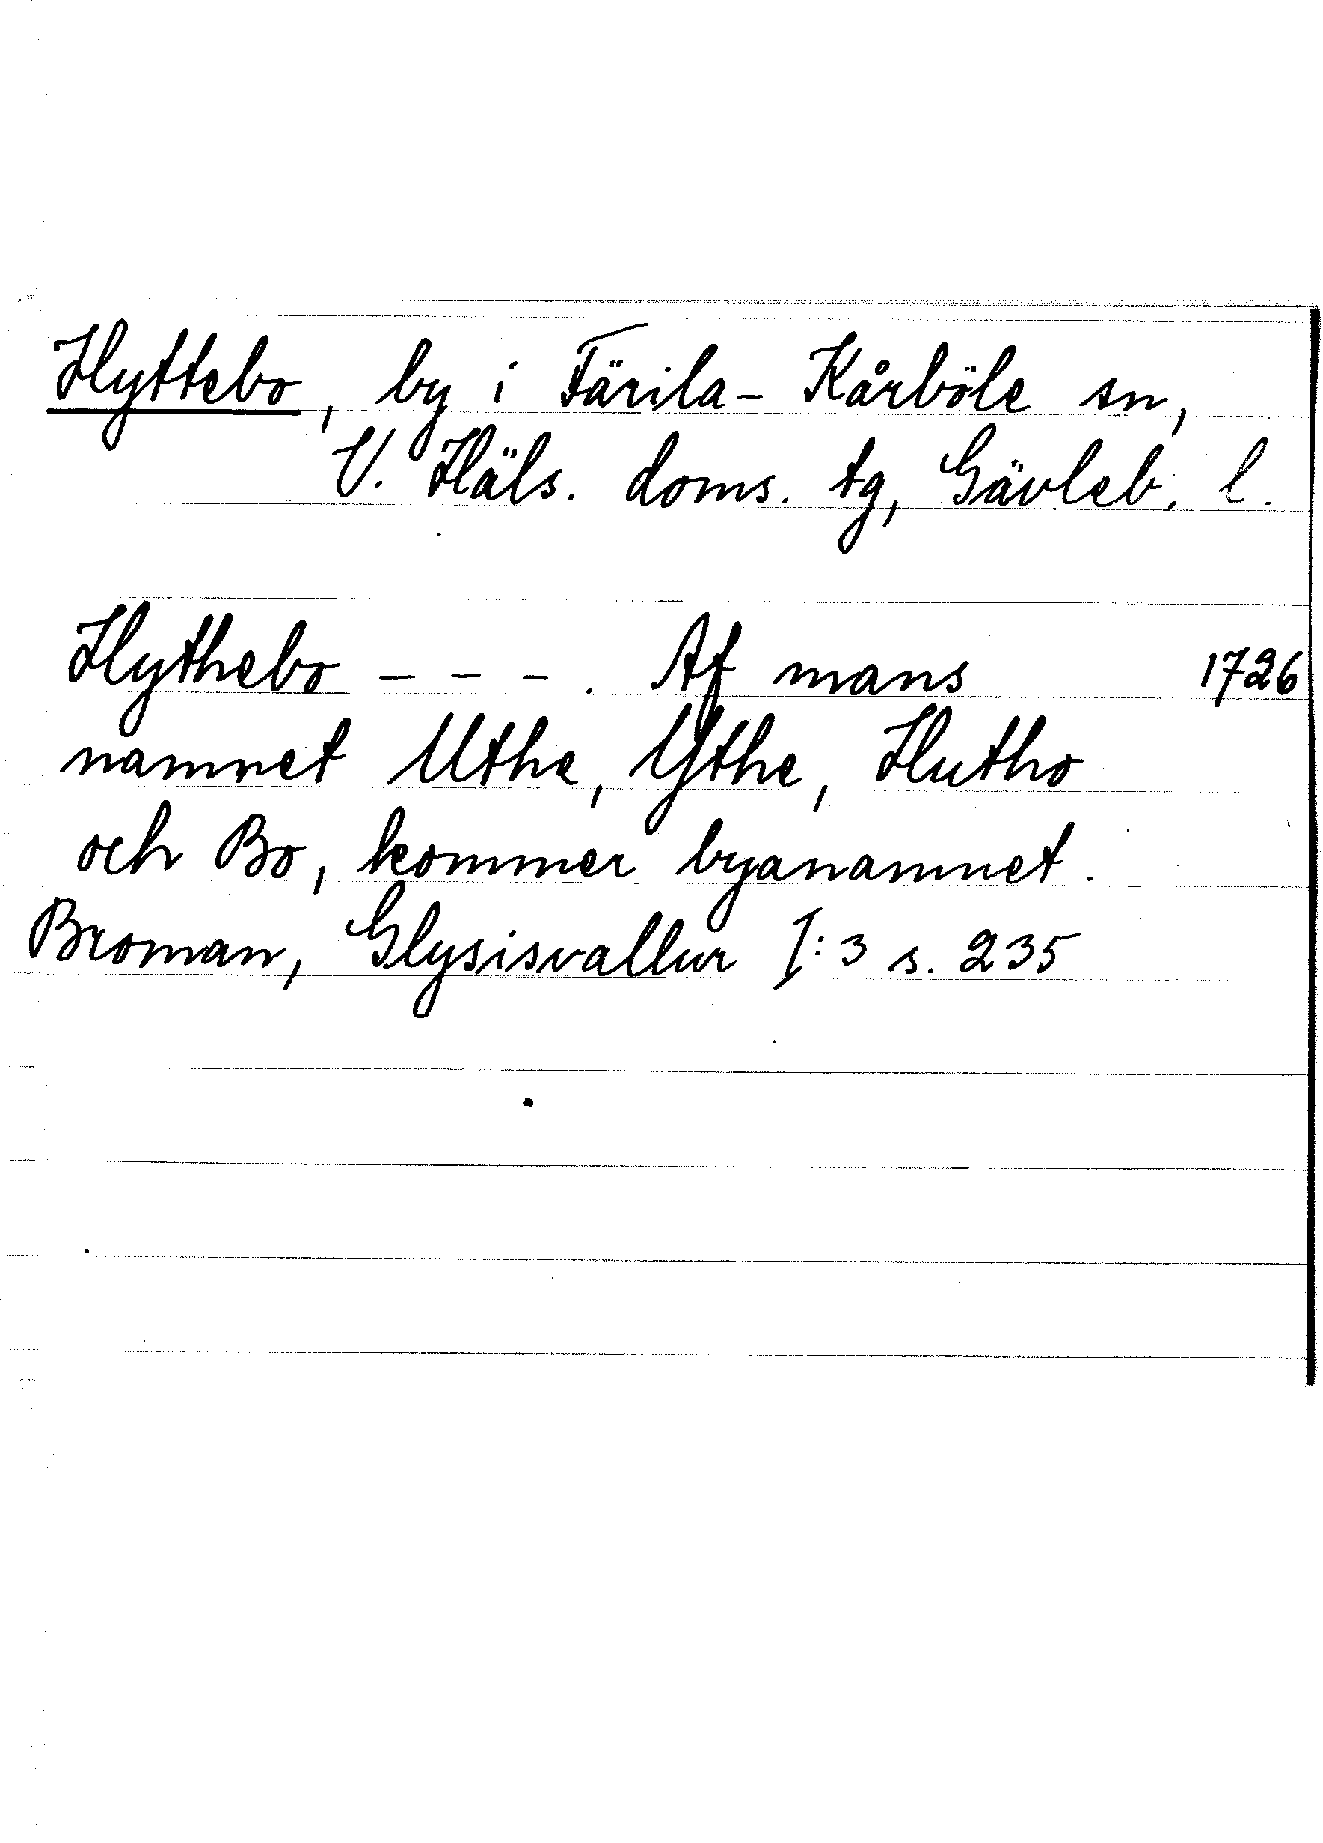 Hyttebo, by i Färila-Kårböle sn,
V. Häls. doms. tg, Gävleb. l.
Hythebo - - - . Af mans 1726
namnet Uthe, Ythe, Hutho
och Bo, kommer byanamnet.
Broman, Glysisvallur I:3 s. 235